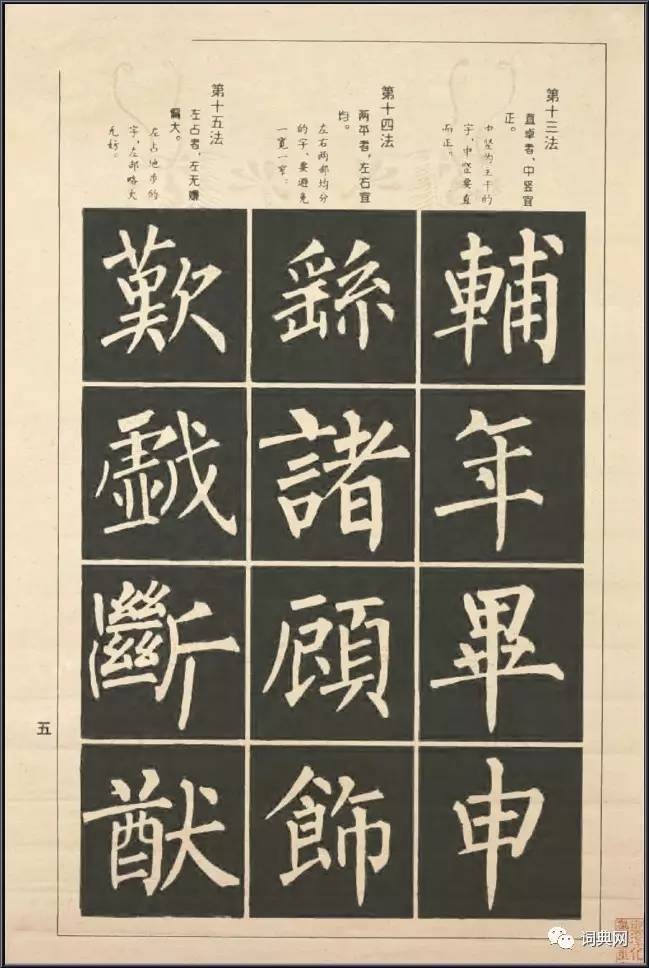 第十三法
直卓者、中竖宜
正。
中竖为主干的
字,中竖要直
而正。
輔
年
畢
申
第十四法
两平者,左右宜
均。
左右两部均分
的字,要避免
一宽一窄。
繇
諸
顧
飾
第十五法
左占者,左无嫌
偏大。
左占地步的
字,左部略大
无妨。
歎
戯
斷
猷
五
词典网